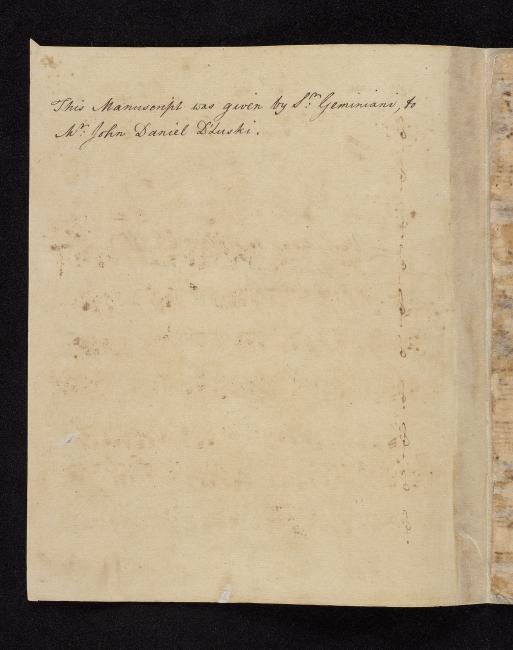 This Manuscript was given by S.r Geminiani, to
Mr. John Daniel D'Luski.